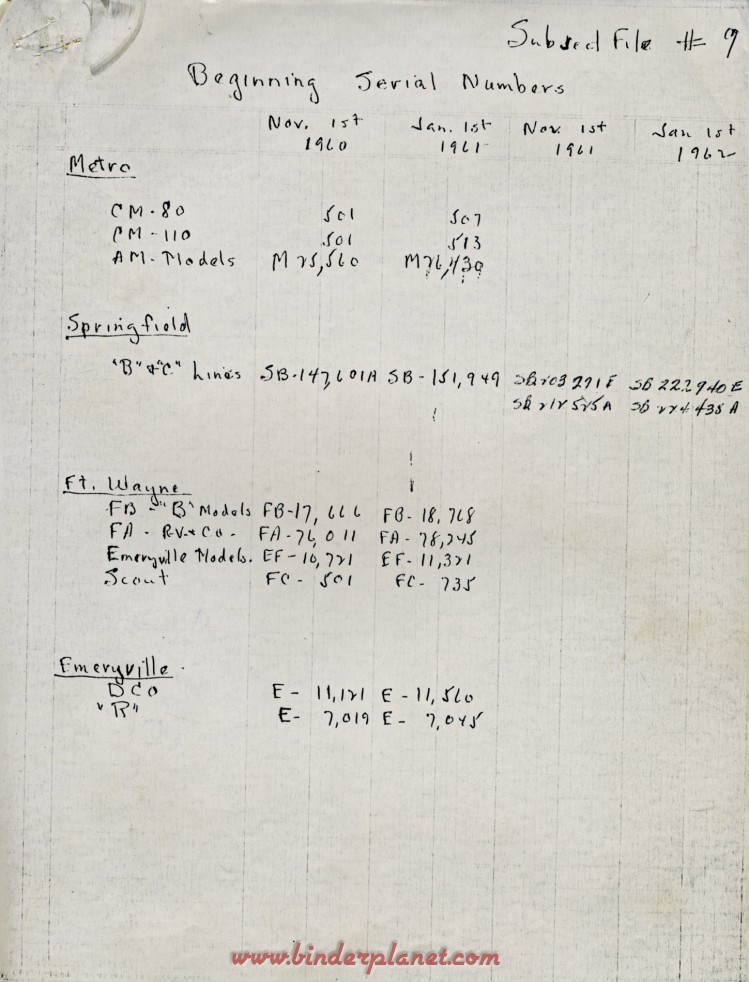 Subject File # 9
Beginning Serial Numbers
Nov. 1st Jan. 1st Nov. 1st Jan 1st
1960 1961 1961 1962
Metro
CM-80 501 507
CM-110 501 513
AM-Models M25,560 M26,430
Springfield
"B" & "C" Lines SB-147,601A SB-151,949 SB203271E SB 222940 E
SB 224438 A
Ft. Wayne
FB - "B" Models FB-17,666 FB-18,768
FA - R-V & Co - FA-76,011 FA-78,245
Emeryville Models. EF-10,721 EF-11,321
Scout FC-501 FC-735
Emeryville.
DCO E-11,121 E-11,560
"R" E-7,019 E-7,045
www.binderplanet.com